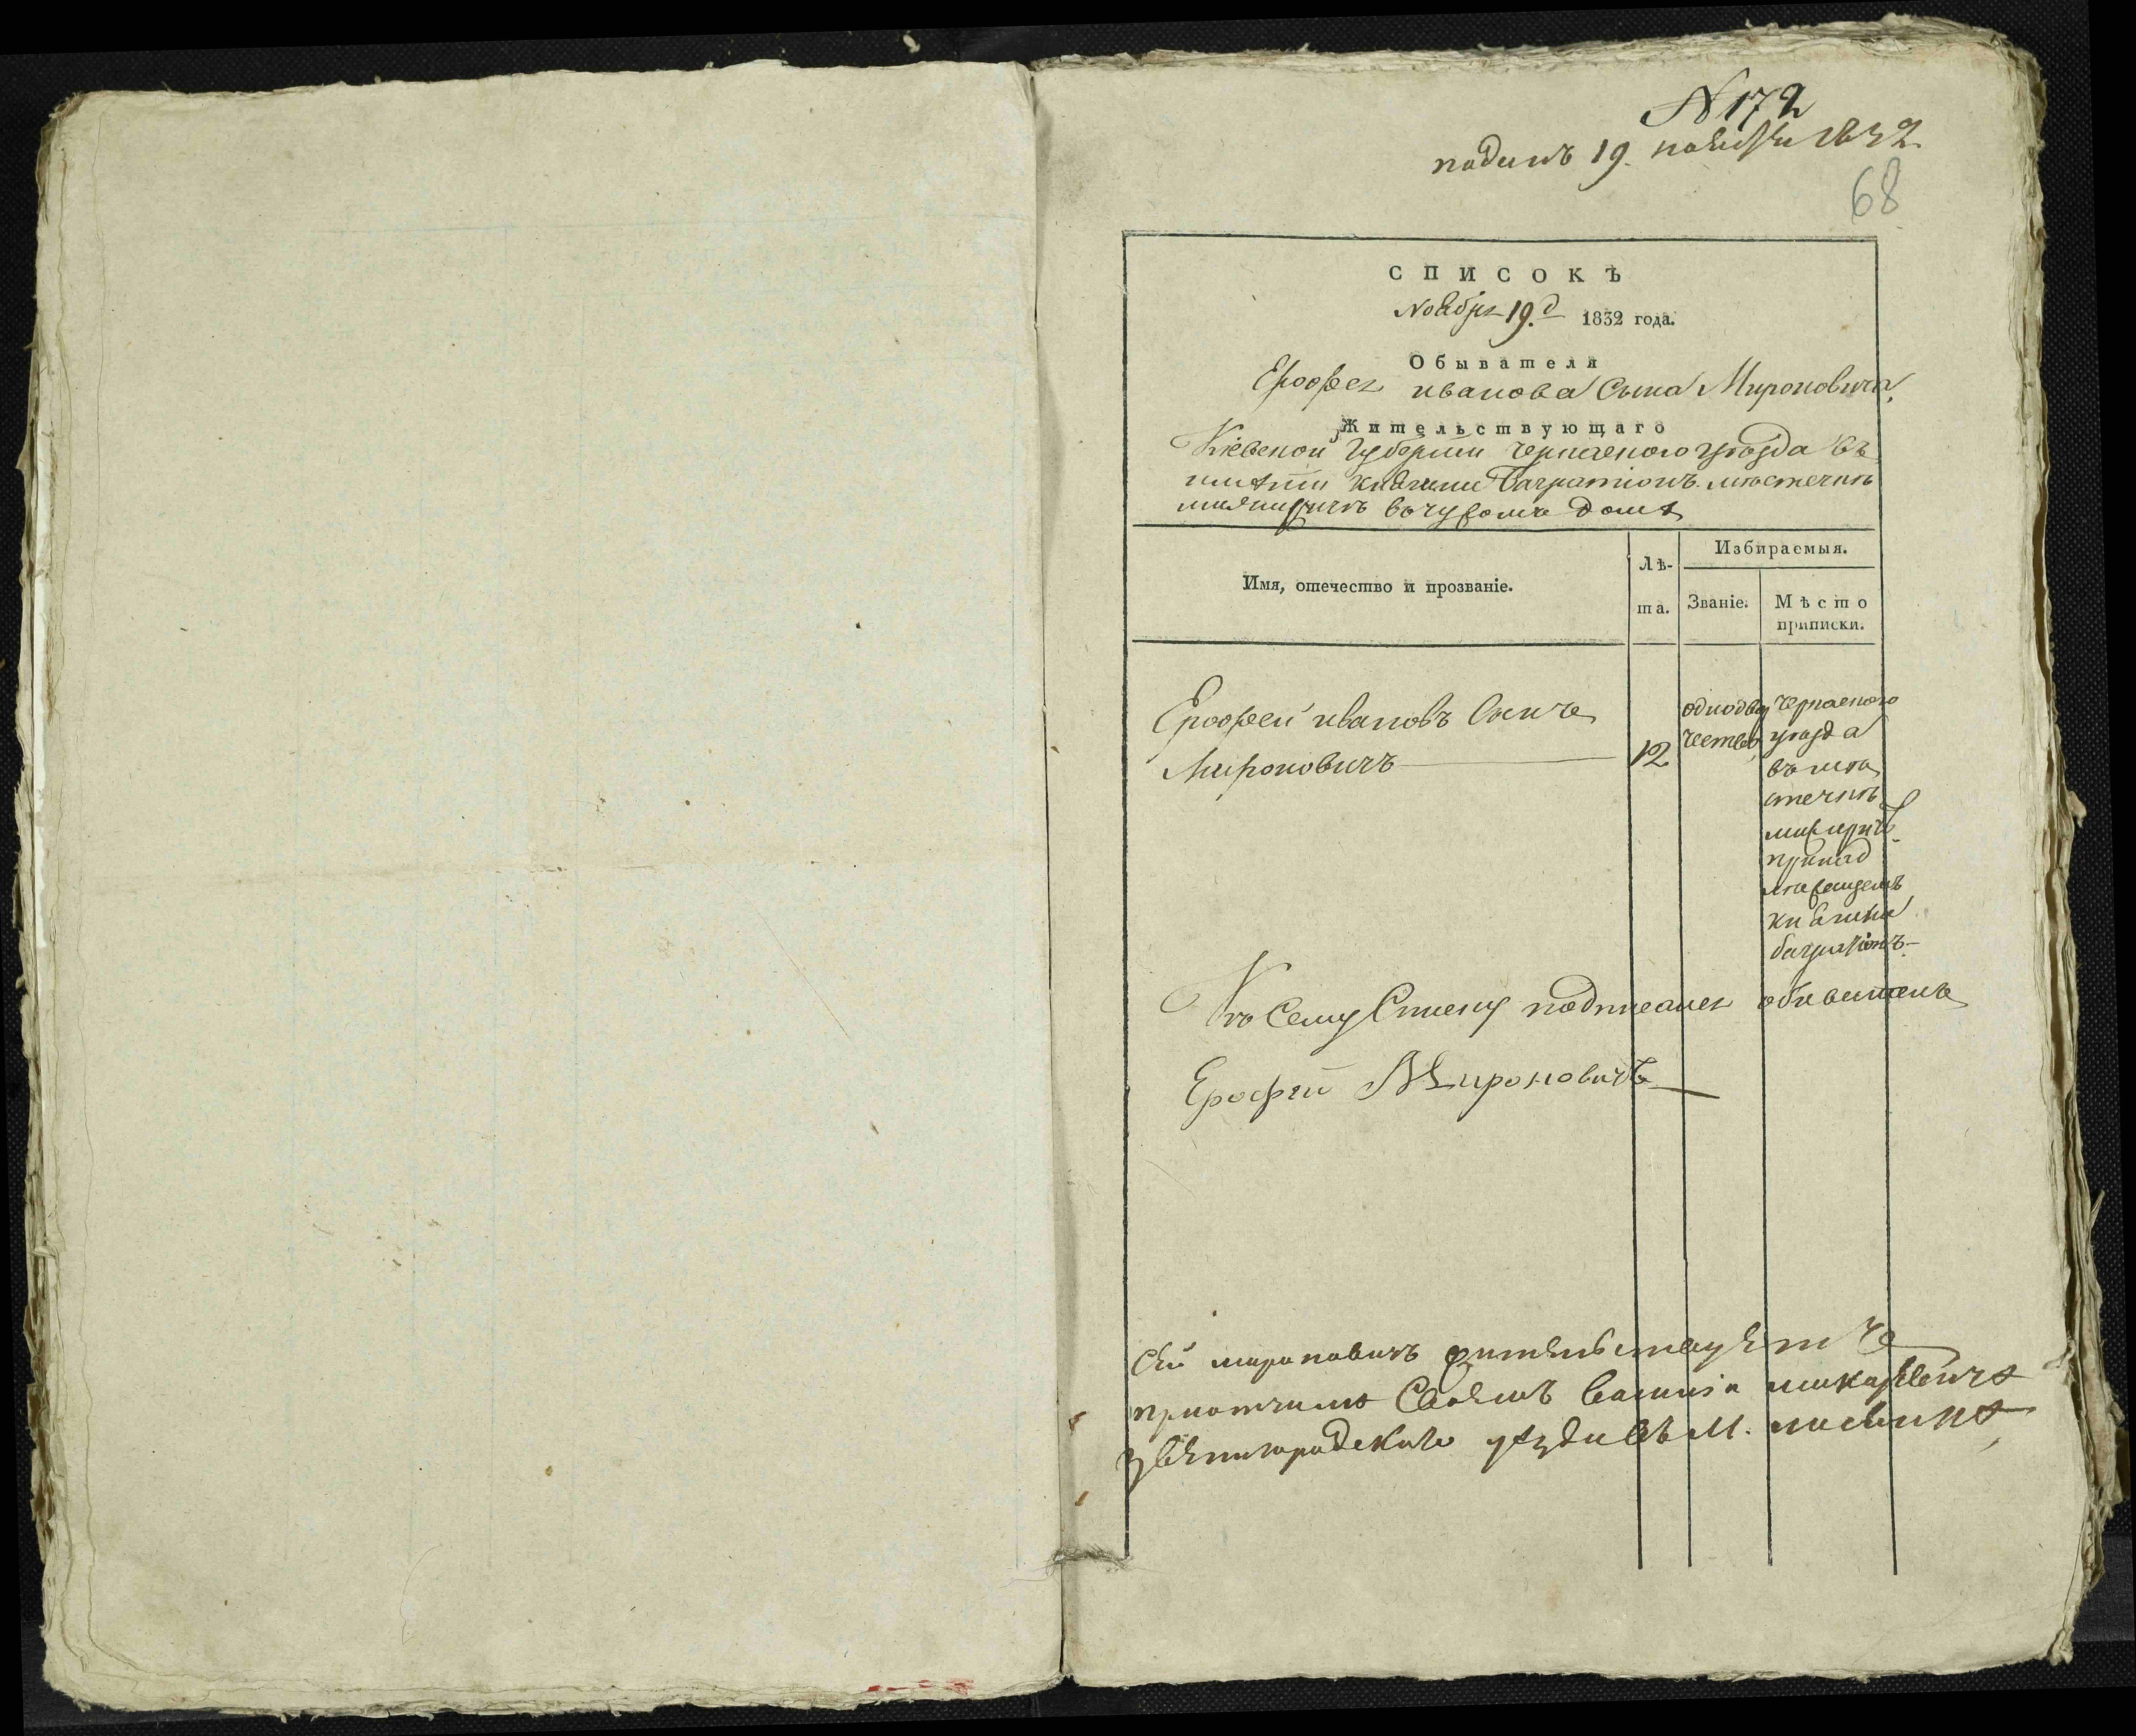 N 172
поданъ 19. ноября 1832
68
СПИСОКЪ
Ноября 19.д 1832 года.
Обывателя
Ерофея иванова Сына Мироновича,
Жительствующаго
Кіевской Губерніи Черкаского уѣзда въ
имѣніи княгини Багратіонъ местечкѣ
в чужомъ домѣ
Имя, отечество и прозваніе.
Лѣ-
та.
Избираемыя.
Званіе.
Мѣсто
приписки.
Ерофей ивановъ Сынъ
Мироновичъ
12
однодвор
чество
Черкаского
уѣзда
въ мѣ
стечкѣ
принад
лѣжащемъ
княгини
багратіонъ
Къ Сему Списку подписался обыватель
Ерофей Мироновичъ
Сей мироновичъ жительствуетъ
приотчиме Своемъ
Звенигородскаго уѣзда въ М. лисянке